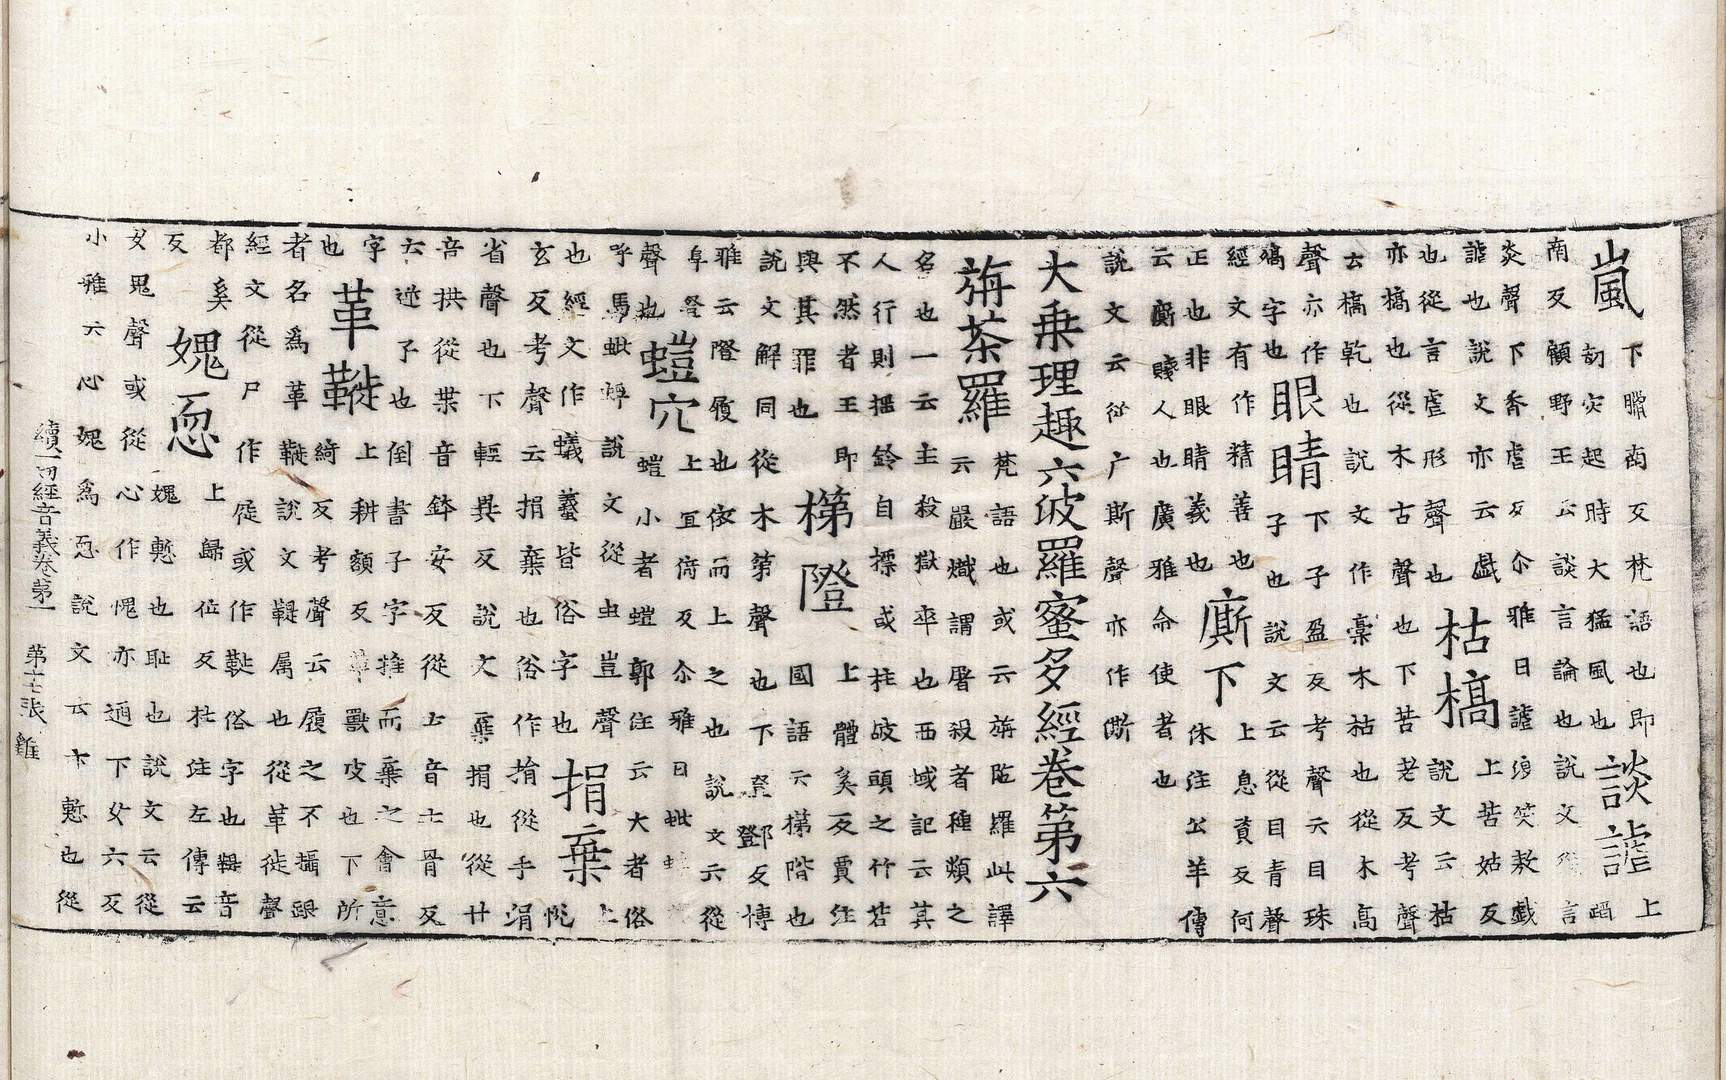 嵐下臘南反梵語也即劫灾起時大猛風也談謔上蹈
南反顧野王云談言論也說文從言炎聲下香虐反尒雅曰謔浪笑敖戲
謔也說文亦云戲也從言虐形聲也枯槁上苦姑反說文云枯
亦槁也從木古聲也下苦老反考聲云槁乾也說文作稾木枯也從木高
聲亦作槁字也眼睛下子盈反考聲云目珠子也說文云從目青聲
經文有作精善也正也非眼睛義也廝下上息賷反何休注公羊傳
云廝賤人也廣雅命使者也說文云從广斯聲亦作㒋
大乘理趣六波羅蜜多經卷第六
旃荼羅梵語也或云旃陁羅此譯云嚴熾謂屠殺者種類之
名也一云主殺獄卒也西域記云其人行則搖鈴自摽或柱破頭之竹若
不然者王即與其罪也梯隥上體奚反賈注國語云梯階也
說文解同從木第聲也下登鄧反博雅云隥履也依而上之也說文云從
阜登聲也螘穴上宜倚反尒雅曰蚍蜉小者螘郭注云大者俗
呼馬蚍蜉說文從虫豈聲也經文作蟻䘈皆俗字也捐棄上悅
玄反考聲云捐棄也俗作捎從手涓省聲也下輕異反說文棄捐也從廾
音拱從𠦒音鉢安反從𠫓音土骨反𠫓逆子也倒書子字推而棄之會意
字也革𩌦上耕額反革獸皮也下所綺反考聲云履之不攝跟
者名為革𩌦說文鞮属也從革徙聲經文從尸作屣或作鞾俗字也鞮音
都奚反媿恧上歸位反杜注左傳云媿慙也恥也說文云從
女鬼聲或從心作愧亦通下女六反小雅云心媿為恧說文云亦慙也從
續一切經音義卷第一 第十七張 雞